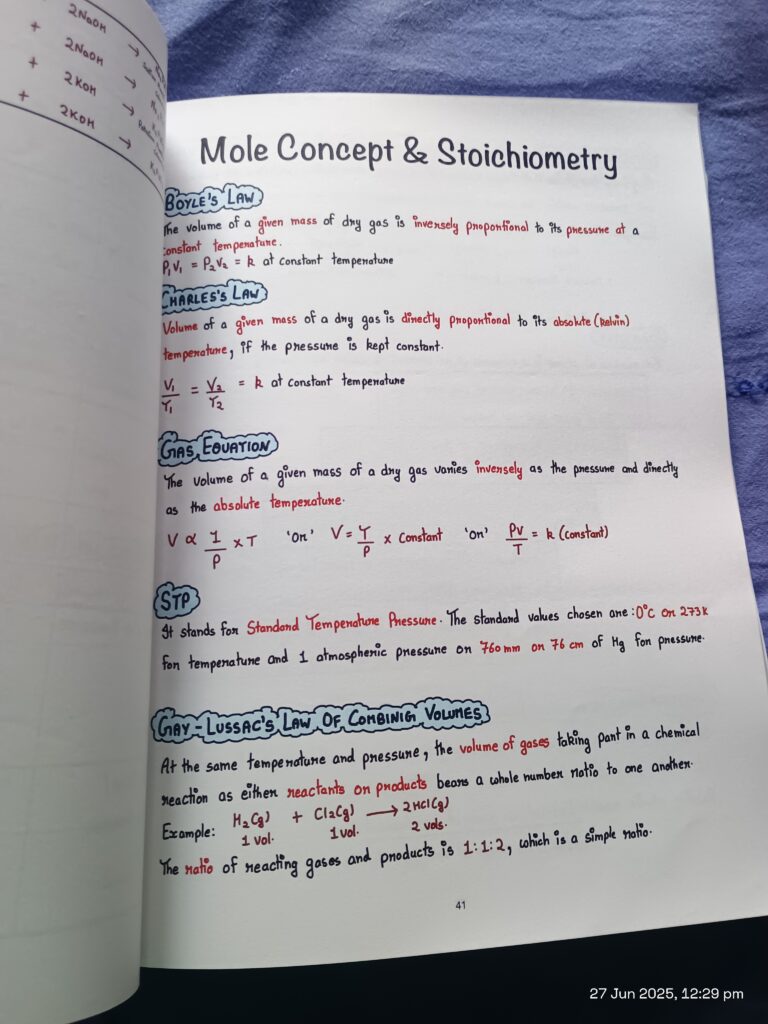 2NaOH
+ 2NaOH →
+ 2KOH →
+ 2KOH →
+ →
Mole Concept & Stoichiometry
BOYLE'S LAW
The volume of a given mass of dry gas is inversely proportional to its pressure at a
constant temperature.
P₁V₁ = P₂V₂ = k at constant temperature
CHARLES'S LAW
Volume of a given mass of a dry gas is directly proportional to its absolute (kelvin)
temperature, if the pressure is kept constant.
V₁/T₁ = V₂/T₂ = k at constant temperature
GAS EQUATION
The volume of a given mass of a dry gas varies inversely as the pressure and directly
as the absolute temperature.
V ∝ 1/P × T 'or' V = T/P × Constant 'or' PV/T = k (constant)
STP
It stands for Standard Temperature Pressure. The standard values chosen are: 0°C or 273k
for temperature and 1 atmospheric pressure or 760 mm or 76 cm of Hg for pressure.
GAY-LUSSAC'S LAW OF COMBINIG VOLUMES
At the same temperature and pressure, the volume of gases taking part in a chemical
reaction as either reactants or products bears a whole number ratio to one another.
Example: H₂(g) + Cl₂(g) → 2HCl(g)
1 vol. 1 vol. 2 vols.
The ratio of reacting gases and products is 1:1:2, which is a simple ratio.
41
27 Jun 2025, 12:29 pm